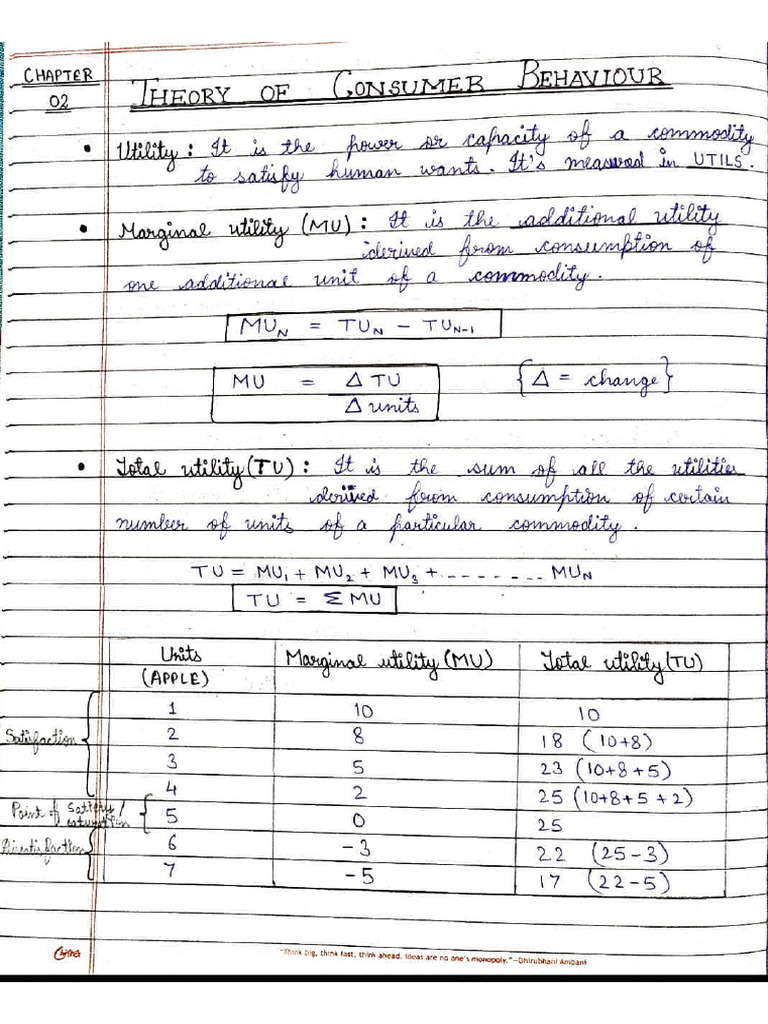 CHAPTER
02
THEORY OF CONSUMER BEHAVIOUR
• Utility : It is the power or capacity of a commodity
to satisfy human wants. It's measured in UTILS.
• Marginal utility (MU) : It is the additional utility
derived from consumption of
one additional unit of a commodity.
MU_N = TU_N − TU_N-1
MU = Δ TU
Δ units
{Δ = change}
• Total utility (TU) : It is the sum of all the utilities
derived from consumption of certain
number of units of a particular commodity.
TU = MU₁ + MU₂ + MU₃ + -------- MU_N
TU = Σ MU
Units (APPLE) Marginal utility (MU) Total utility (TU)
1 10 10
Satisfaction 2 8 18 (10+8)
3 5 23 (10+8+5)
4 2 25 (10+8+5+2)
Point of / 5 0 25
6 -3 22 (25-3)
7 -5 17 (22-5)
"Think big, think fast, think ahead. Ideas are no one's monopoly."–Dhirubhani Ambani